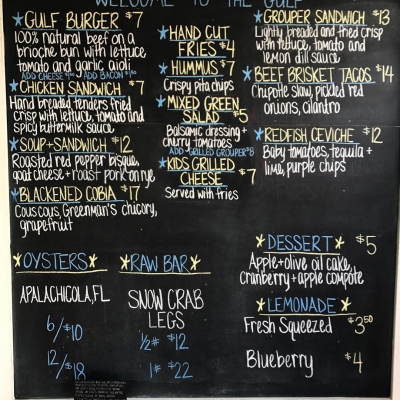 WELCOME TO THE GULF
★GULF BURGER★ $7
100% natural beef on a
brioche bun with lettuce,
tomato and garlic aioli
ADD CHEESE $1.00 ADD BACON $1.50
★CHICKEN SANDWICH★ $7
Hand breaded tenders fried
crisp with lettuce, tomato and
spicy buttermilk sauce
★SOUP+SANDWICH★ $12
Roasted red pepper bisque,
goat cheese + roast pork on rye
★BLACKENED COBIA★ $17
Couscous, Greenman's chicory,
grapefruit
★HAND CUT
FRIES★ $4
★HUMMUS★ $7
Crispy pita chips
★MIXED GREEN
SALAD★ $5
Balsamic dressing +
cherry tomatoes
ADD GRILLED GROUPER $8
★KIDS GRILLED
CHEESE★ $7
Served with fries
★GROUPER SANDWICH★ $13
Lightly breaded and fried crisp
with lettuce, tomato and
lemon dill sauce
★BEEF BRISKET TACOS★ $14
Chipotle slaw, pickled red
onions, cilantro
★REDFISH CEVICHE★ $12
Baby tomatoes, tequila +
lime, purple chips
★OYSTERS★
APALACHICOLA, FL
6/$10
12/$18
★RAW BAR★
SNOW CRAB
LEGS
½# $12
1# $22
★DESSERT★ $5
Apple+olive oil cake,
cranberry+apple compote
★LEMONADE★
Fresh Squeezed $3.50
Blueberry $4